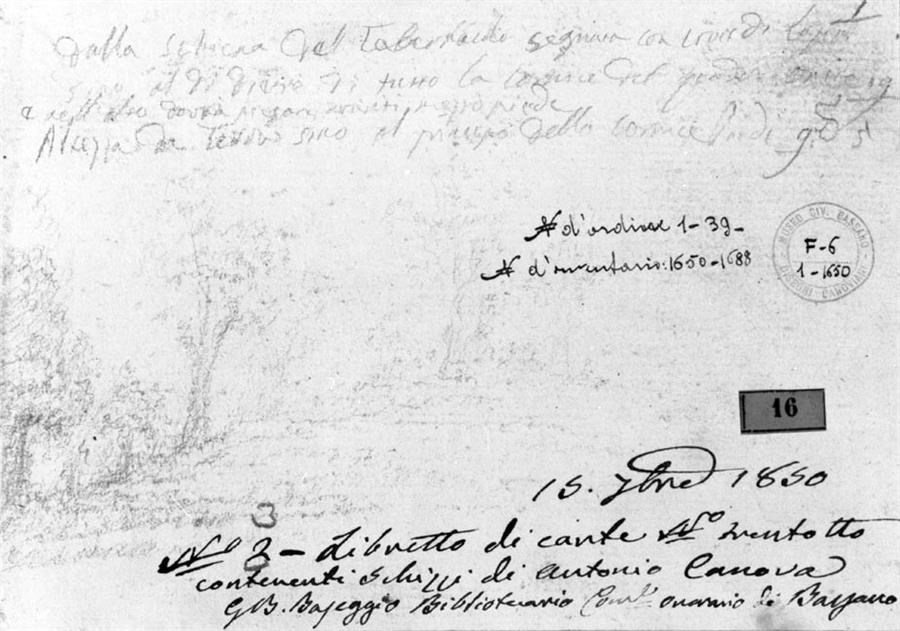 1
Dalla Schiena del Tabernaculo segnava con
sino al di dietro di tutto la Cornice del 19
e nell'
Altezza da Terra sino al principio della Cornice Piedi 5
N d'ordine 1-39-
N d'inventario: 1650-1688
MUSEO CIV. BASSANO
DISEGNI CANOVIANI
F-6
1-1650
16
15. 7bre 1850
3
Nº 2 - Libretto di carte Nº trentotto
contenenti Schizzi di Antonio Canova
G.B. Baseggio Bibliotecario onorario di Bassano